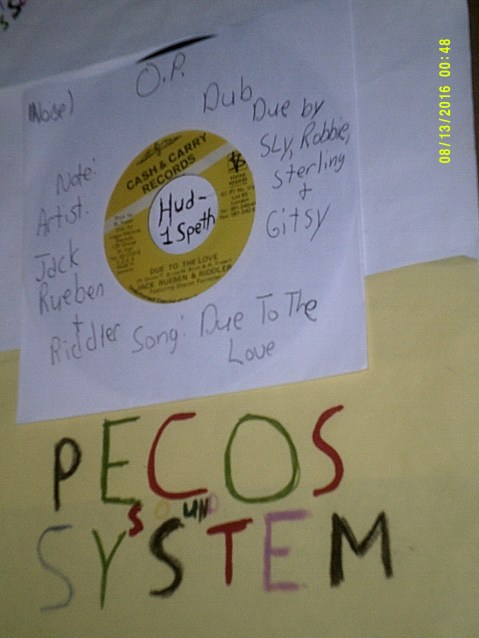 08/13/2016 00:48
O.P.
(Noise)
Dub
Due by
Sly, Robbie,
Sterling
+
Gitsy
Note:
Artist:
Jack
Rueben
+
Riddler
CASH & CARRY
RECORDS
Hud-
1 Speth
DUE TO THE LOVE
JACK RUEBEN & RIDDLER
Song: Due To The
Love
PECOS
SOUND
SYSTEM